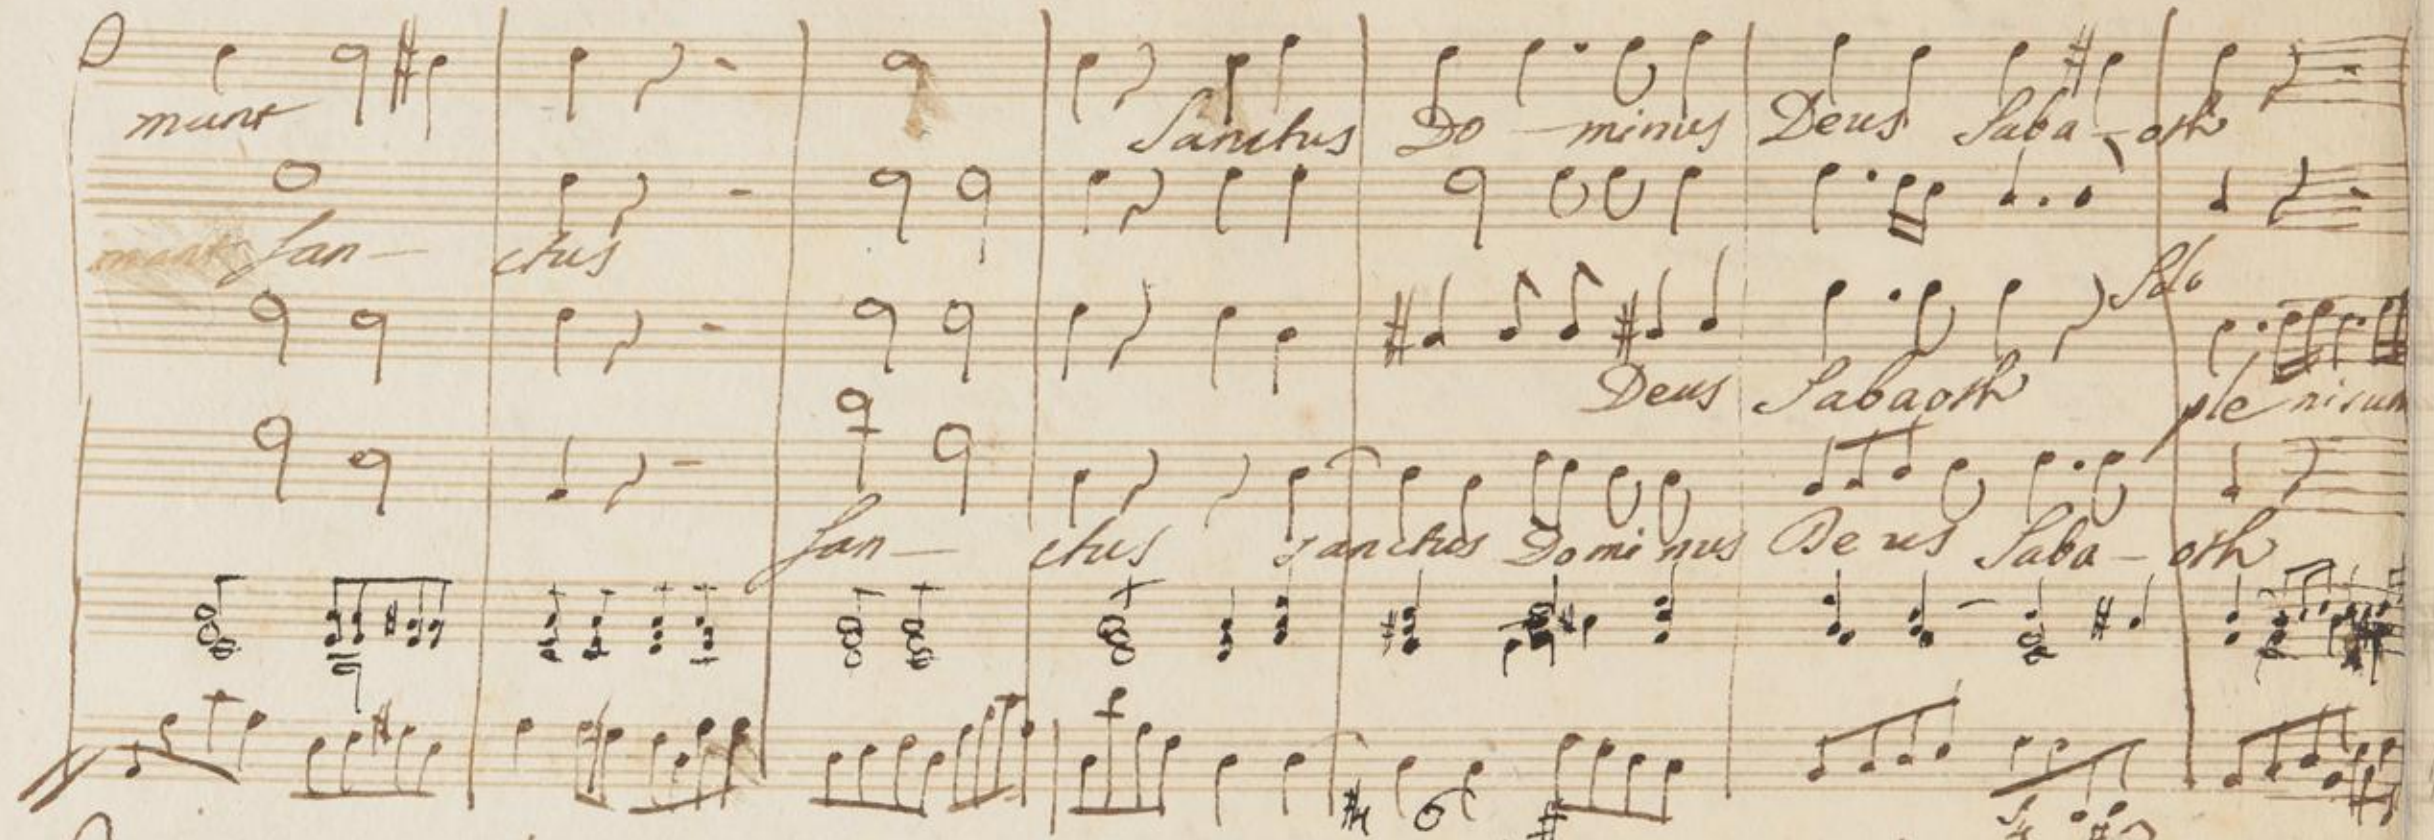 munt Sanctus Do - minus Deus Saba - oth
munt San - ctus
Solo
Deus Sabaoth pleni sunt
San - ctus sanctus Dominus De us Saba - oth